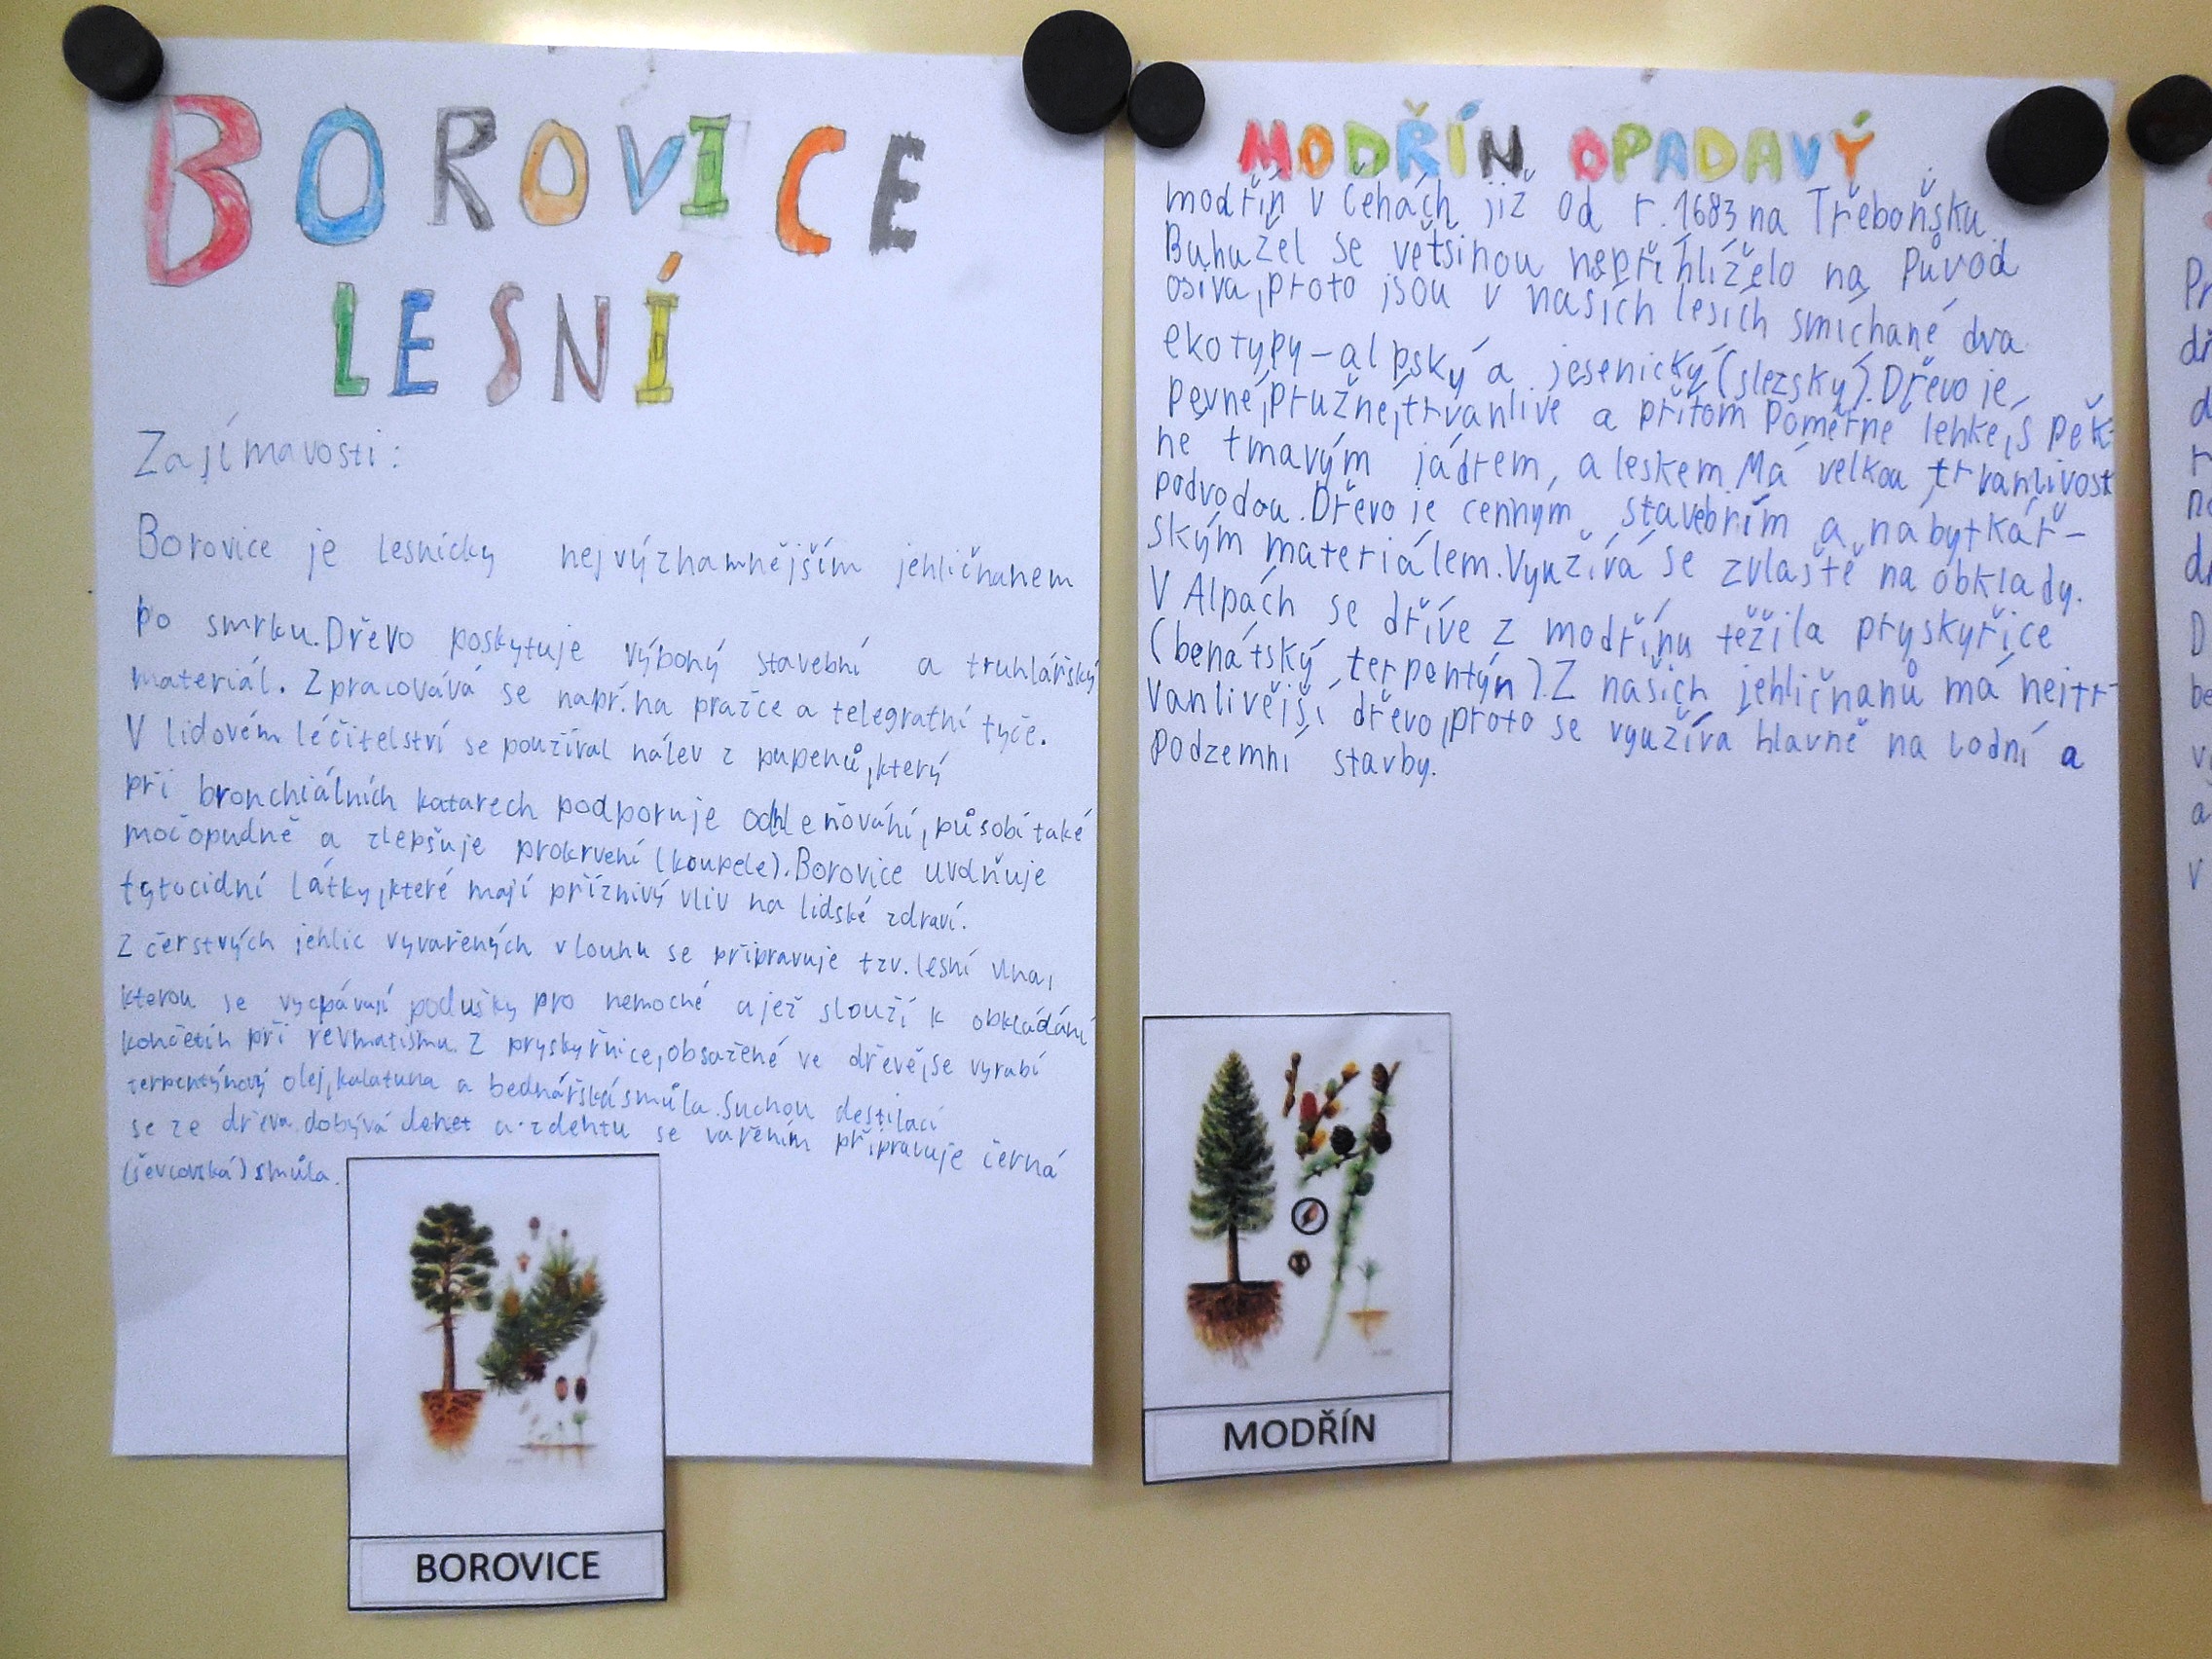 BOROVICE
LESNÍ
Zajímavosti:
Borovice je lesnicky nejvýznamnějším jehličnanem
po smrku. Dřevo poskytuje výboný stavební a truhlářský
materiál. Zpracovává se např. na pražce a telegratní tyče.
V lidovém léčitelství se používal nálev z pupenů, který
při bronchiálních katarech podporuje odhleňování, působí také
močopudně a zlepšuje prokrvení (koupele). Borovice uvolňuje
fytocidní látky, které mají příznivý vliv na lidské zdraví.
Z čerstvých jehlic vyvařených v louhu se připravuje tzv. lesní vlna,
kterou se vycpávají podušky pro nemocné a jež slouží k obkládání
končetin při revmatismu. Z pryskyřnice, obsažené ve dřevě, se vyrábí
terpentýnový olej, kalafuna a bednářská smůla. Suchou destilací
se ze dřeva dobývá dehet a z dehtu se vařením připravuje černá
(ševcovská) smůla.
BOROVICE
MODŘÍN OPADAVÝ
modřín v Čehách již od r. 1683 na Třeboňsku.
Buhužel se většinou nepřihlíželo na původ
osiva, proto jsou v našich lesích smíchané dva
ekotypy - alpský a jesenický (slezský). Dřevo je
pevné, pružné, trvanlivé a přitom poměrně lehké, s pěk-
ně tmavým jádrem, a leskem. Má velkou trvanlivost
podvodou. Dřevo je cenným stavebním a nábytkář-
ským materiálem. Využívá se zvlaště na obklady.
V Alpách se dříve z modřínu těžila pryskyřice
(benátský terpentýn). Z našich jehličnanů má nejtr-
vanlivější dřevo, proto se využívá hlavně na lodní a
podzemní stavby.
MODŘÍN